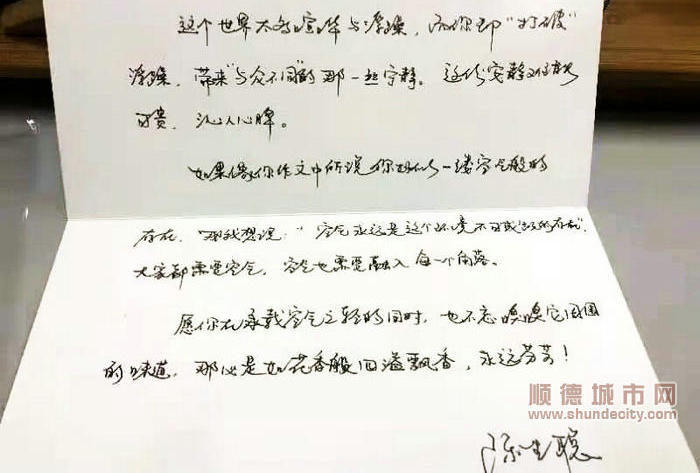 这个世界太过喧哗与浮躁，而你却“打破”
浮躁，带来“与众不同”的那一丝宁静。这份安静难能
可贵，沁人心脾。
如果像你作文中所说你好似一缕空气般的
存在，那我想说：“空气永远是这个环境不可或缺的存在”，
大家都需要空气，空气也需要融入每一个角落。
愿你在承载空气之轻的同时，也不忘嗅嗅它周围
的味道，那必是如花香般四溢飘香，永远芬芳！
陈生聪
顺德城市网
www.shundecity.com